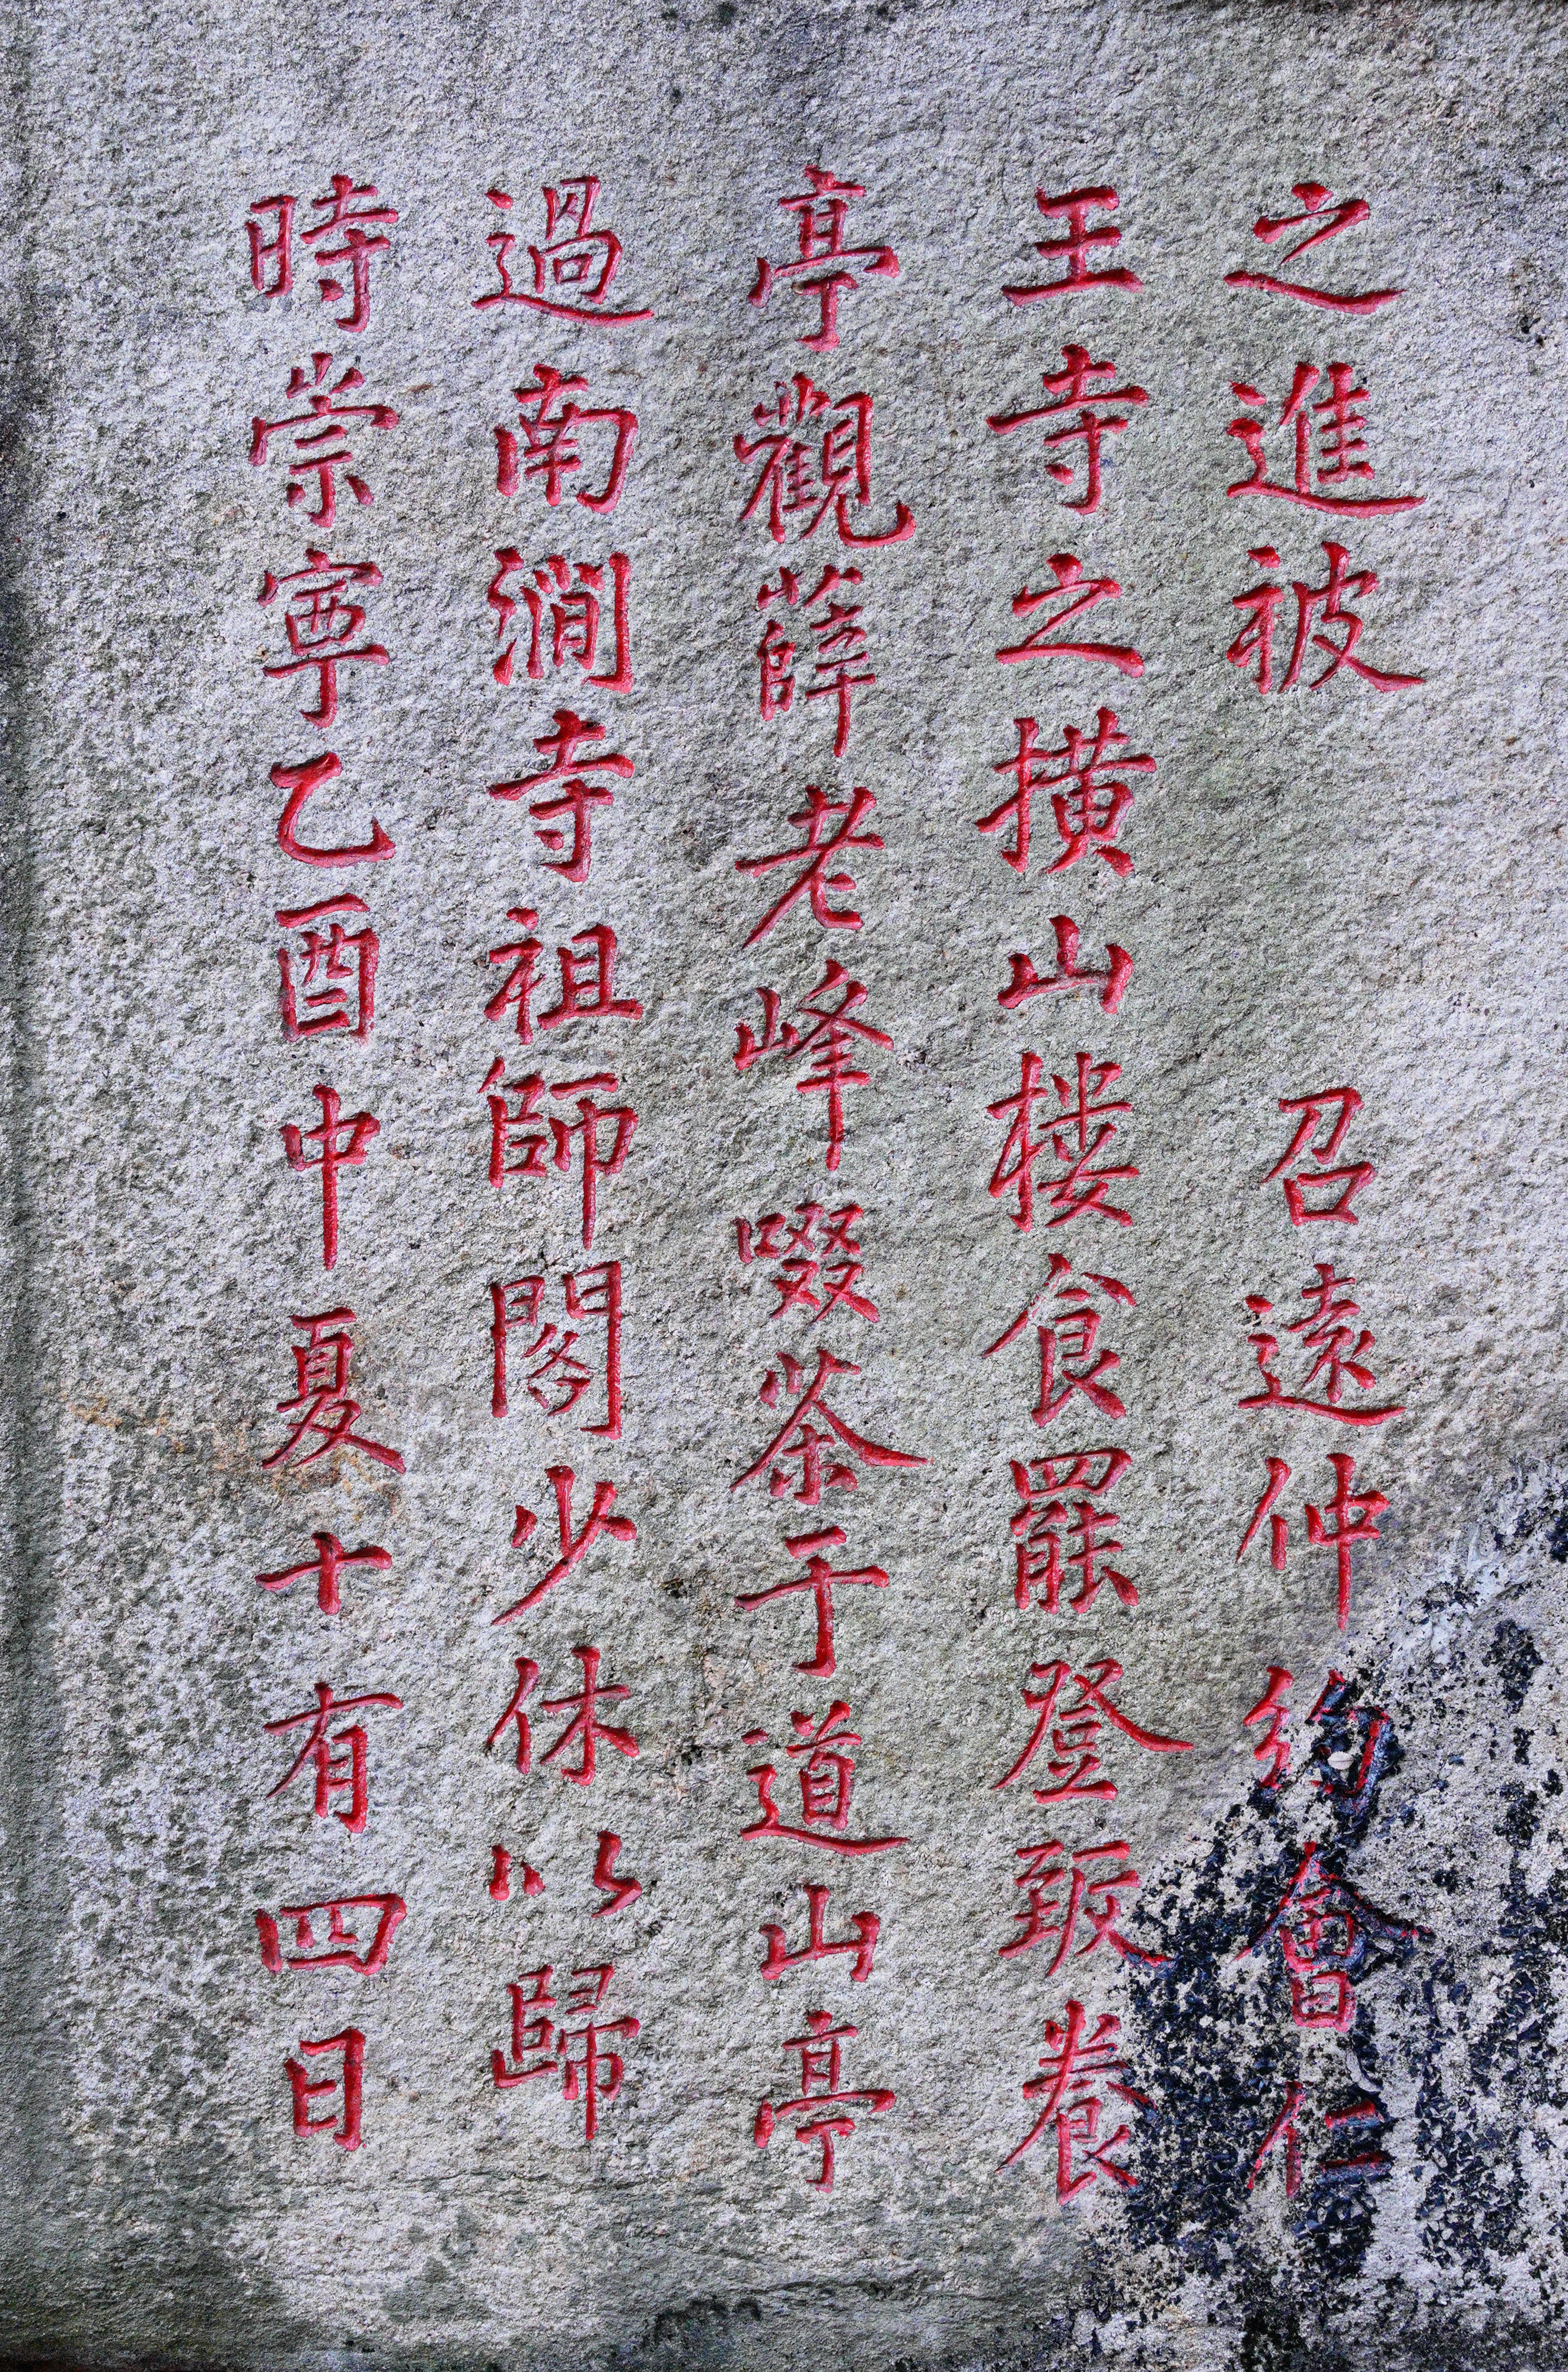 之進被 召遠仲約會仁
王寺之橫山樓食罷登致養
亭觀薛老峰啜茶于道山亭
過南澗寺祖師閣少休以歸
時崇寧乙酉中夏十有四日